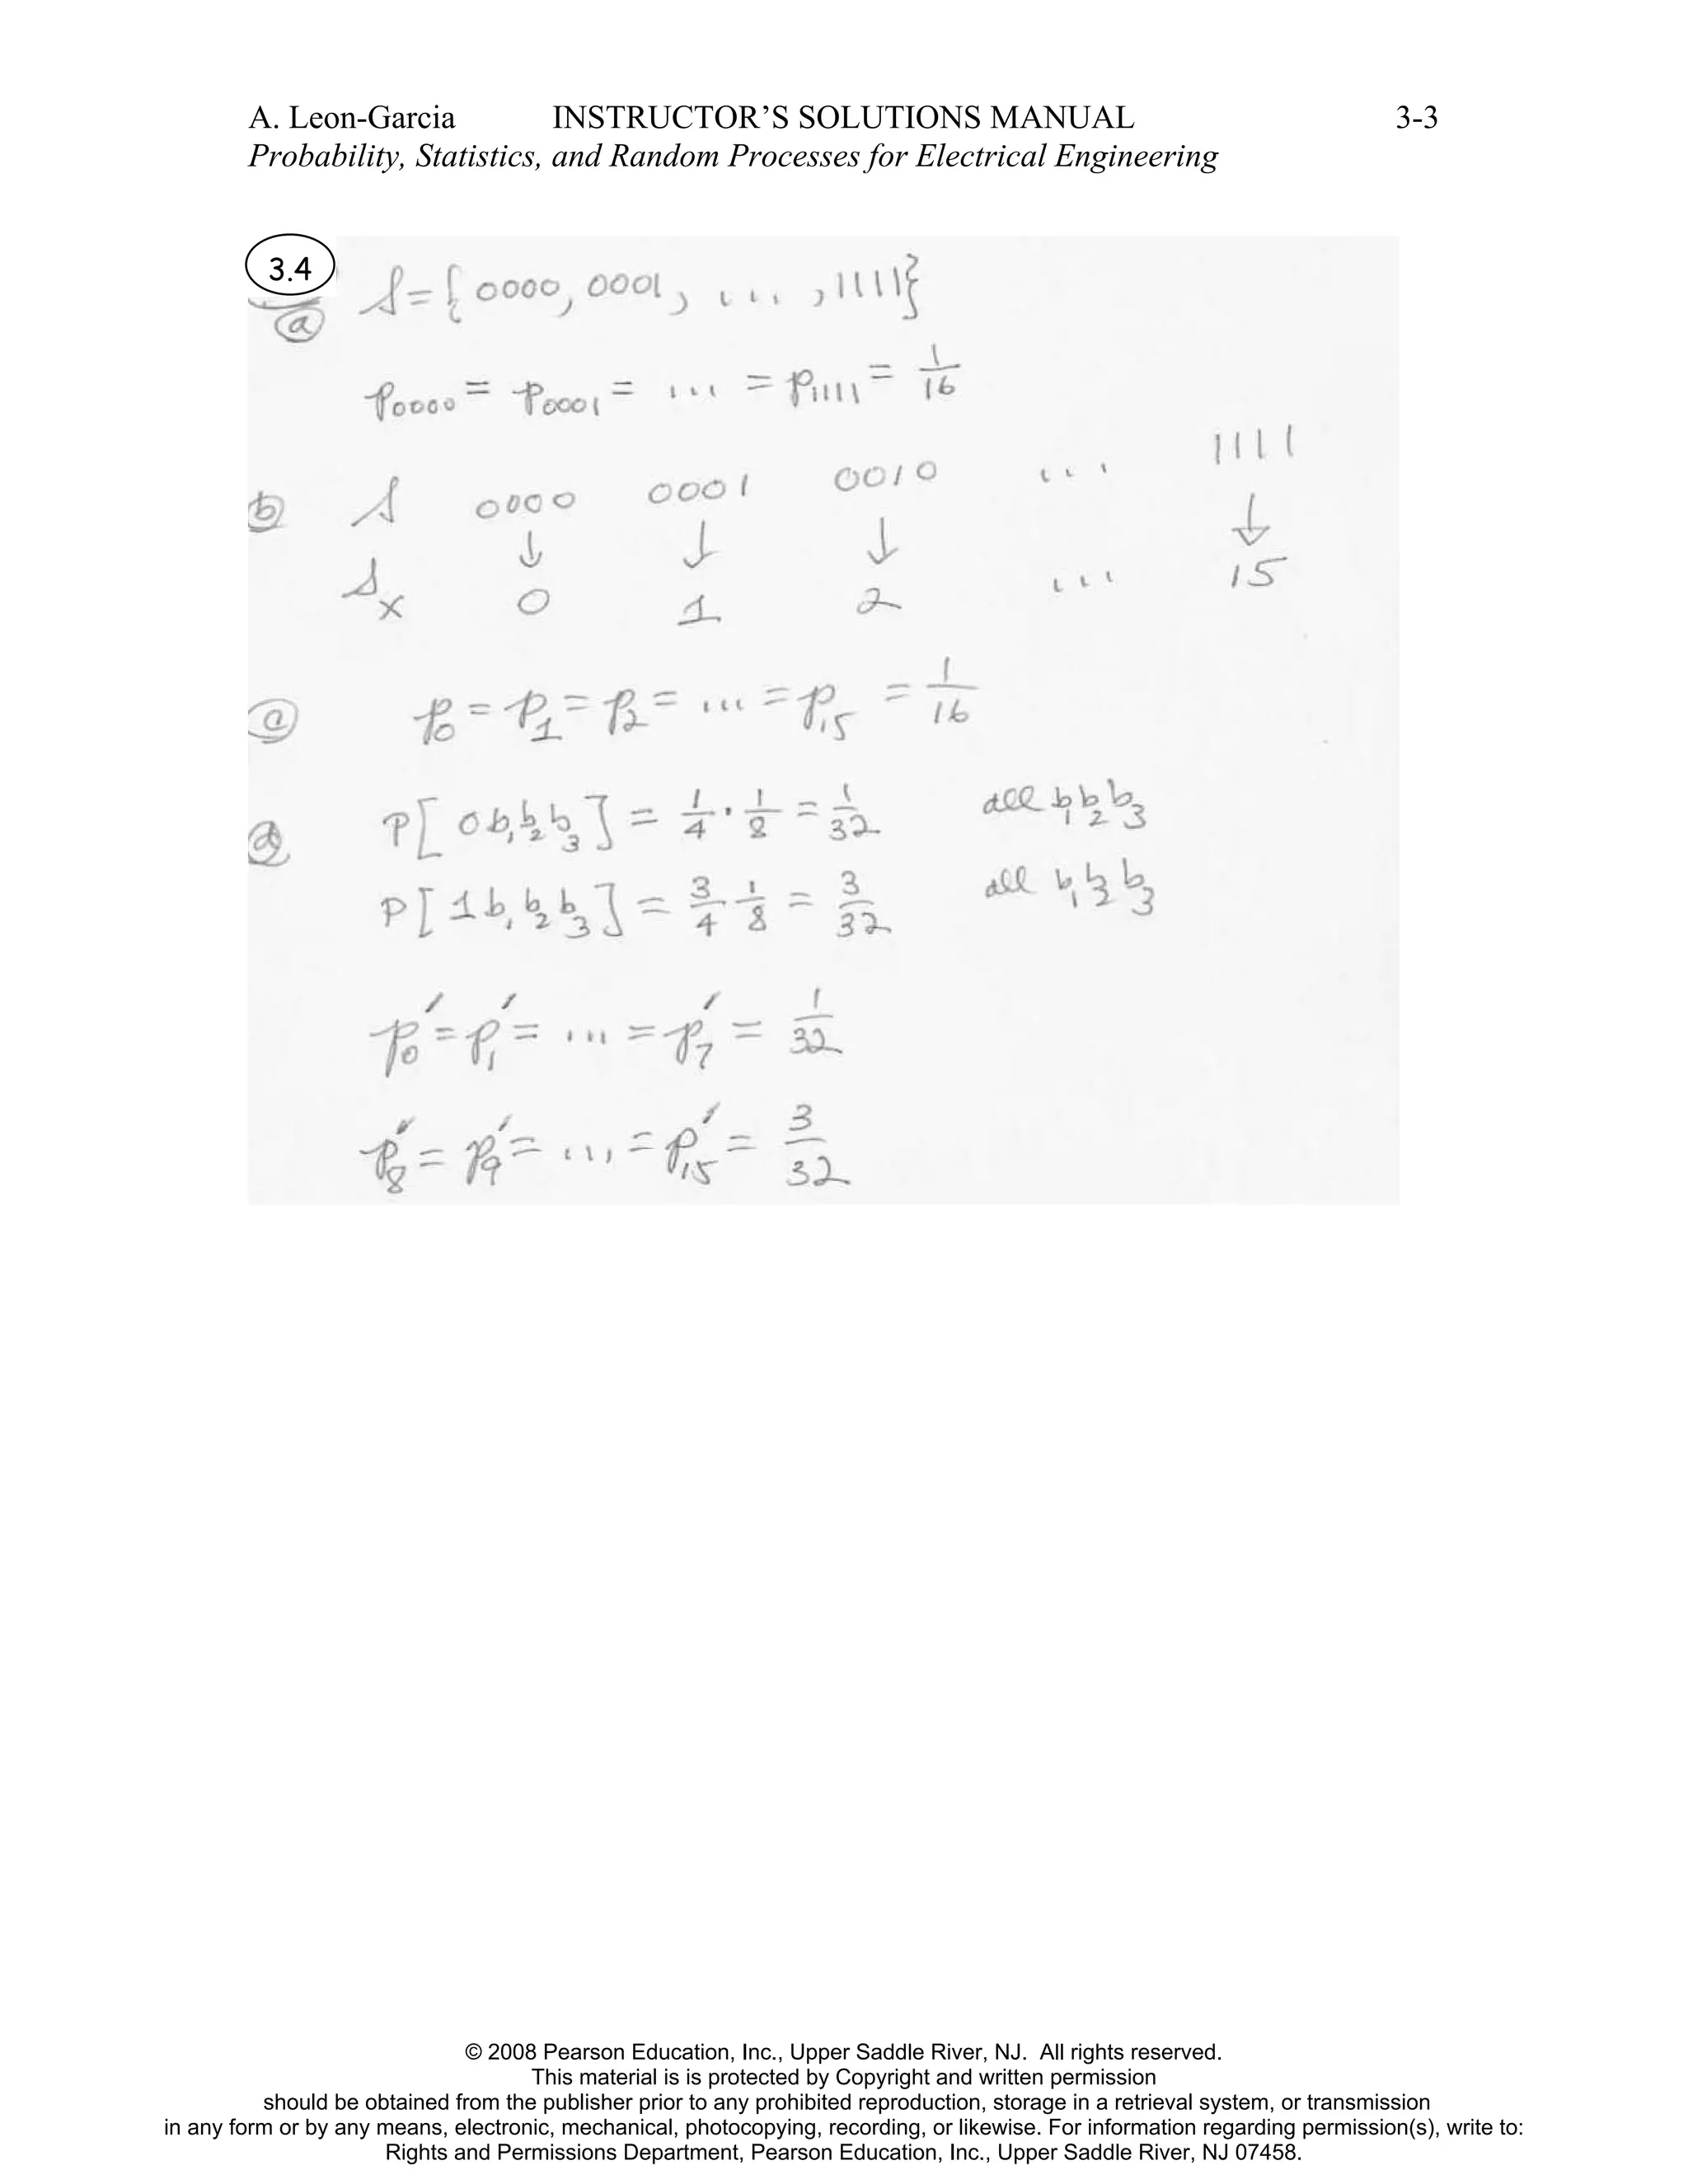 A. Leon-Garcia INSTRUCTOR’S SOLUTIONS MANUAL 3-3
Probability, Statistics, and Random Processes for Electrical Engineering
3.4
ⓐ S = { 0000, 0001, ... , 1111}
p₀₀₀₀ = p₀₀₀₁ = ... = p₁₁₁₁ = 1/16
ⓑ S 0000 0001 0010 ... 1111
↓ ↓ ↓ ↓
S_X 0 1 2 ... 15
ⓒ p₀ = p₁ = p₂ = ... = p₁₅ = 1/16
ⓓ P[ 0b₁b₂b₃ ] = 1/4 · 1/8 = 1/32 all b₁b₂b₃
P[ 1b₁b₂b₃ ] = 3/4 1/8 = 3/32 all b₁b₂b₃
p₀′ = p₁′ = ... = p₇′ = 1/32
p₈′ = p₉′ = ... = p₁₅′ = 3/32
© 2008 Pearson Education, Inc., Upper Saddle River, NJ. All rights reserved.
This material is is protected by Copyright and written permission
should be obtained from the publisher prior to any prohibited reproduction, storage in a retrieval system, or transmission
in any form or by any means, electronic, mechanical, photocopying, recording, or likewise. For information regarding permission(s), write to:
Rights and Permissions Department, Pearson Education, Inc., Upper Saddle River, NJ 07458.